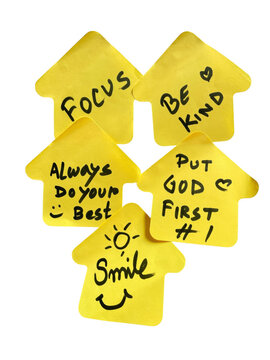 FOCUS
BE
KIND
Always
Do Your
Best
PUT
GOD
FIRST
#1
Smile